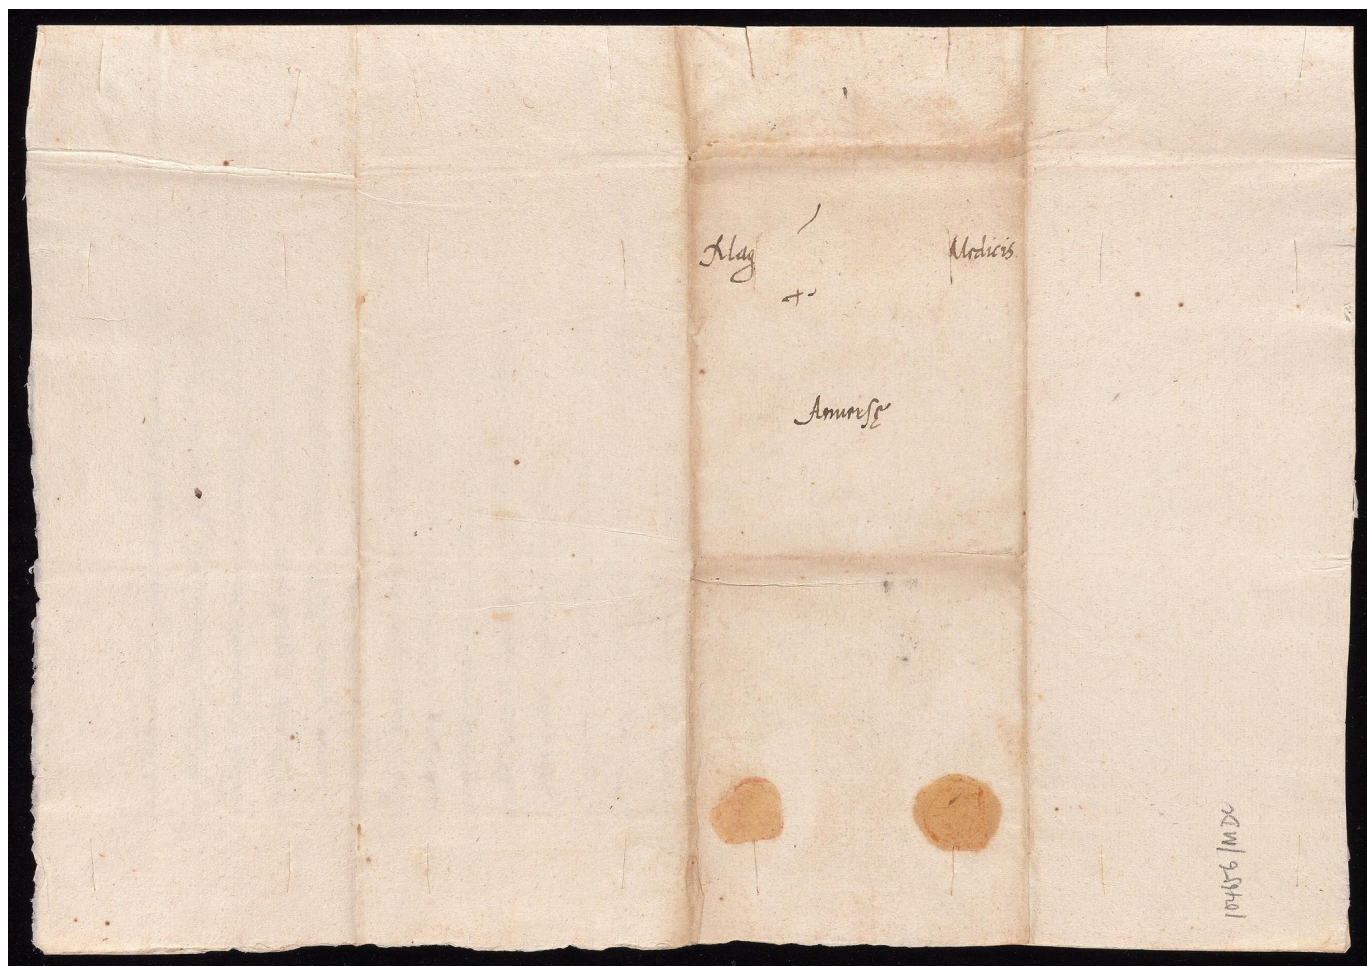 Mag Medicis
Anversę
104656/MDC